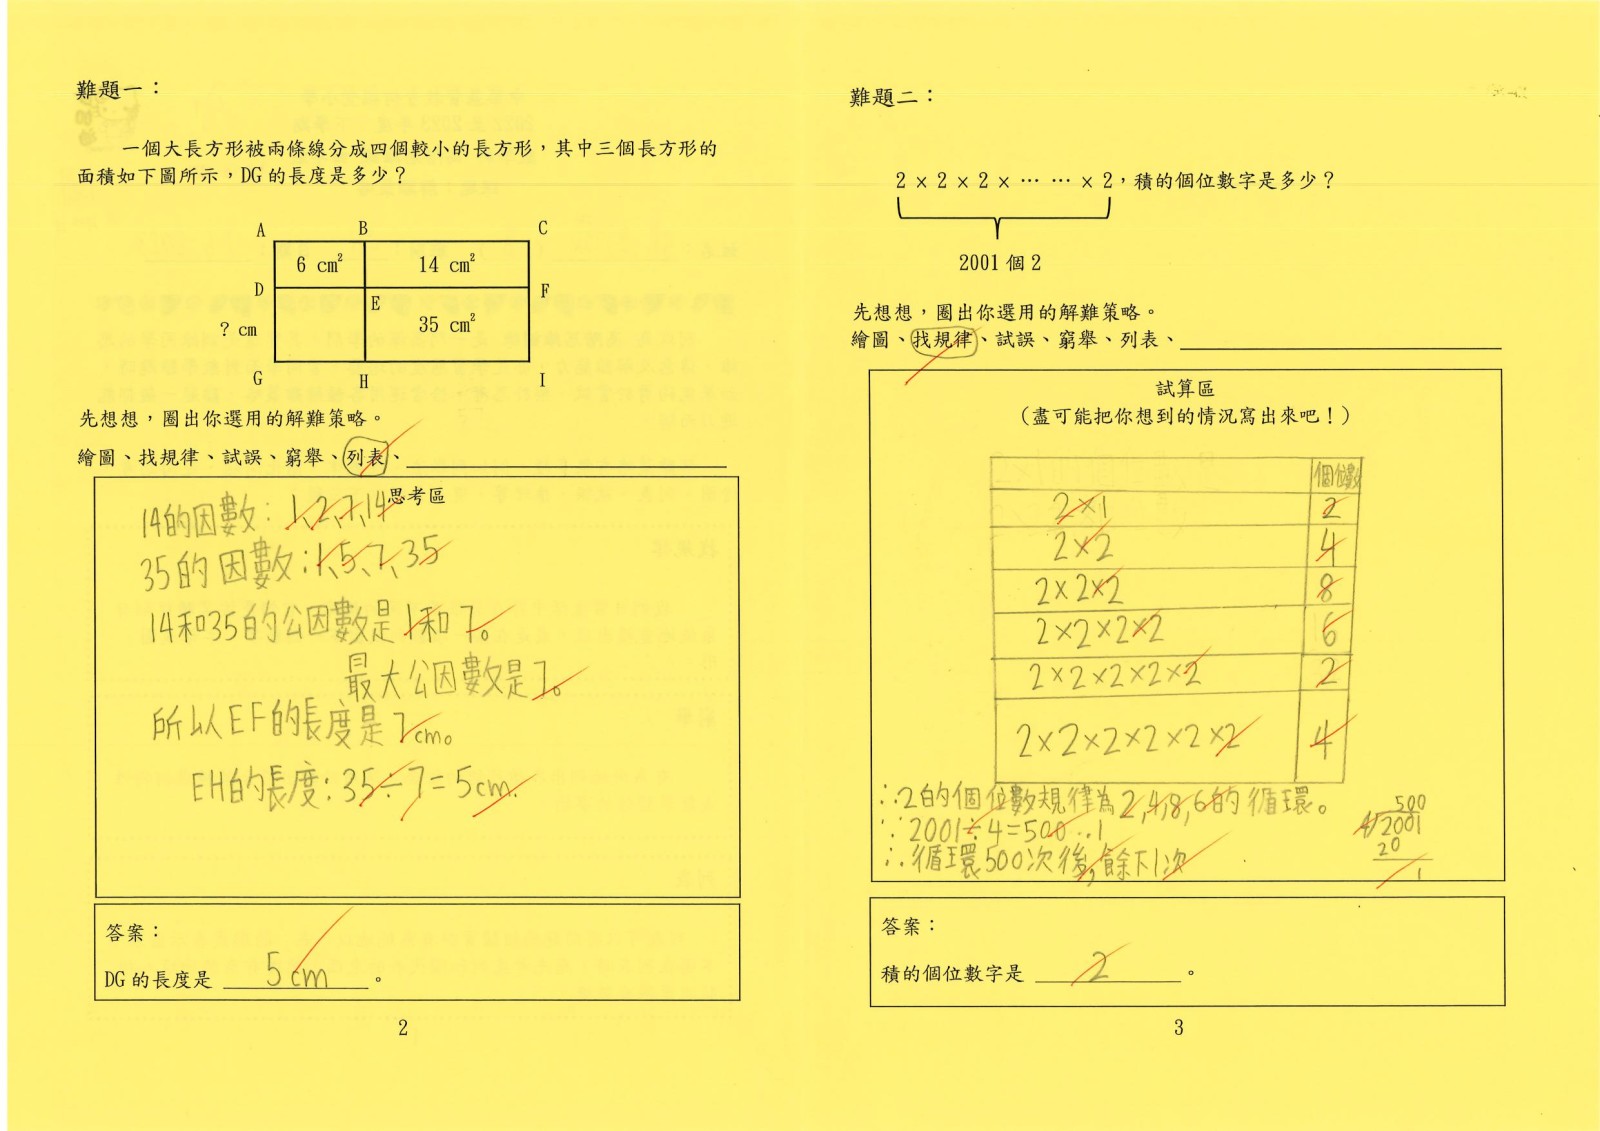 難題一：
一個大長方形被兩條線分成四個較小的長方形，其中三個長方形的
面積如下圖所示，DG 的長度是多少？
A B C
6 cm² 14 cm²
D E F
? cm 35 cm²
G H I
先想想，圈出你選用的解難策略。
繪圖、找規律、試誤、窮舉、列表、
思考區
14的因數：1,2,7,14
35的因數：1,5,7,35
14和35的公因數是1和7。
最大公因數是7。
所以EF的長度是7cm。
EH的長度：35÷7=5cm.
答案：
DG 的長度是 5cm 。
2
難題二：
2 × 2 × 2 × … … × 2，積的個位數字是多少？
2001 個 2
先想想，圈出你選用的解難策略。
繪圖、找規律、試誤、窮舉、列表、
試算區
（盡可能把你想到的情況寫出來吧！）
個位數
2×1 2
2×2 4
2×2×2 8
2×2×2×2 6
2×2×2×2×2 2
2×2×2×2×2×2 4
∴2的個位數規律為2,4,8,6的循環。
∵2001÷4=500...1
∴循環500次後,餘下1次
500
4)2001
20
1
答案：
積的個位數字是 2 。
3